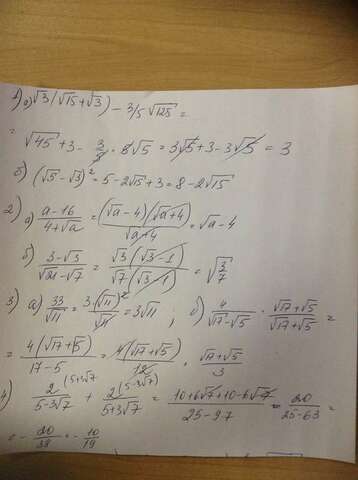 1) а) √3(√15+√3) - 3/5 √125 =
= √45 + 3 - 3/5 · 5√5 = 3√5 + 3 - 3√5 = 3
б) (√5-√3)² = 5 - 2√15 + 3 = 8 - 2√15
2) а) a-16/4+√a = (√a-4)(√a+4)/√a+4 = √a - 4
б) 3-√3/√21-√7 = √3(√3-1)/√7(√3-1) = √3/7
3) а) 33/√11 = 3·(√11)²/√11 = 3√11 ; б) 4/√17-√5 · √17+√5/√17+√5 =
= 4(√17+√5)/17-5 = 4(√17+√5)/12 = √17+√5/3
4) 2(5+3√7)/5-3√7 + 2(5-3√7)/5+3√7 = 10+6√7+10-6√7/25-9·7 = 20/25-63 =
= -20/38 = -10/19